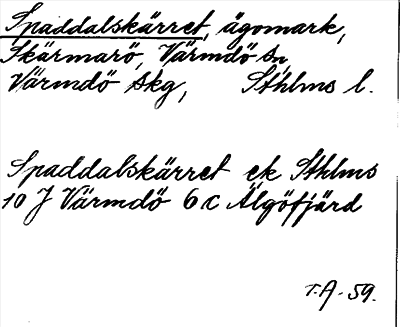 Spaddalskärret, ägomark,
Skärmarö, Värmdö sn,
Värmdö skg, Sthlms l.
Spaddalskärret ek Sthlms
10 J Värmdö 6c Älgöfjärd
T.A. 59.